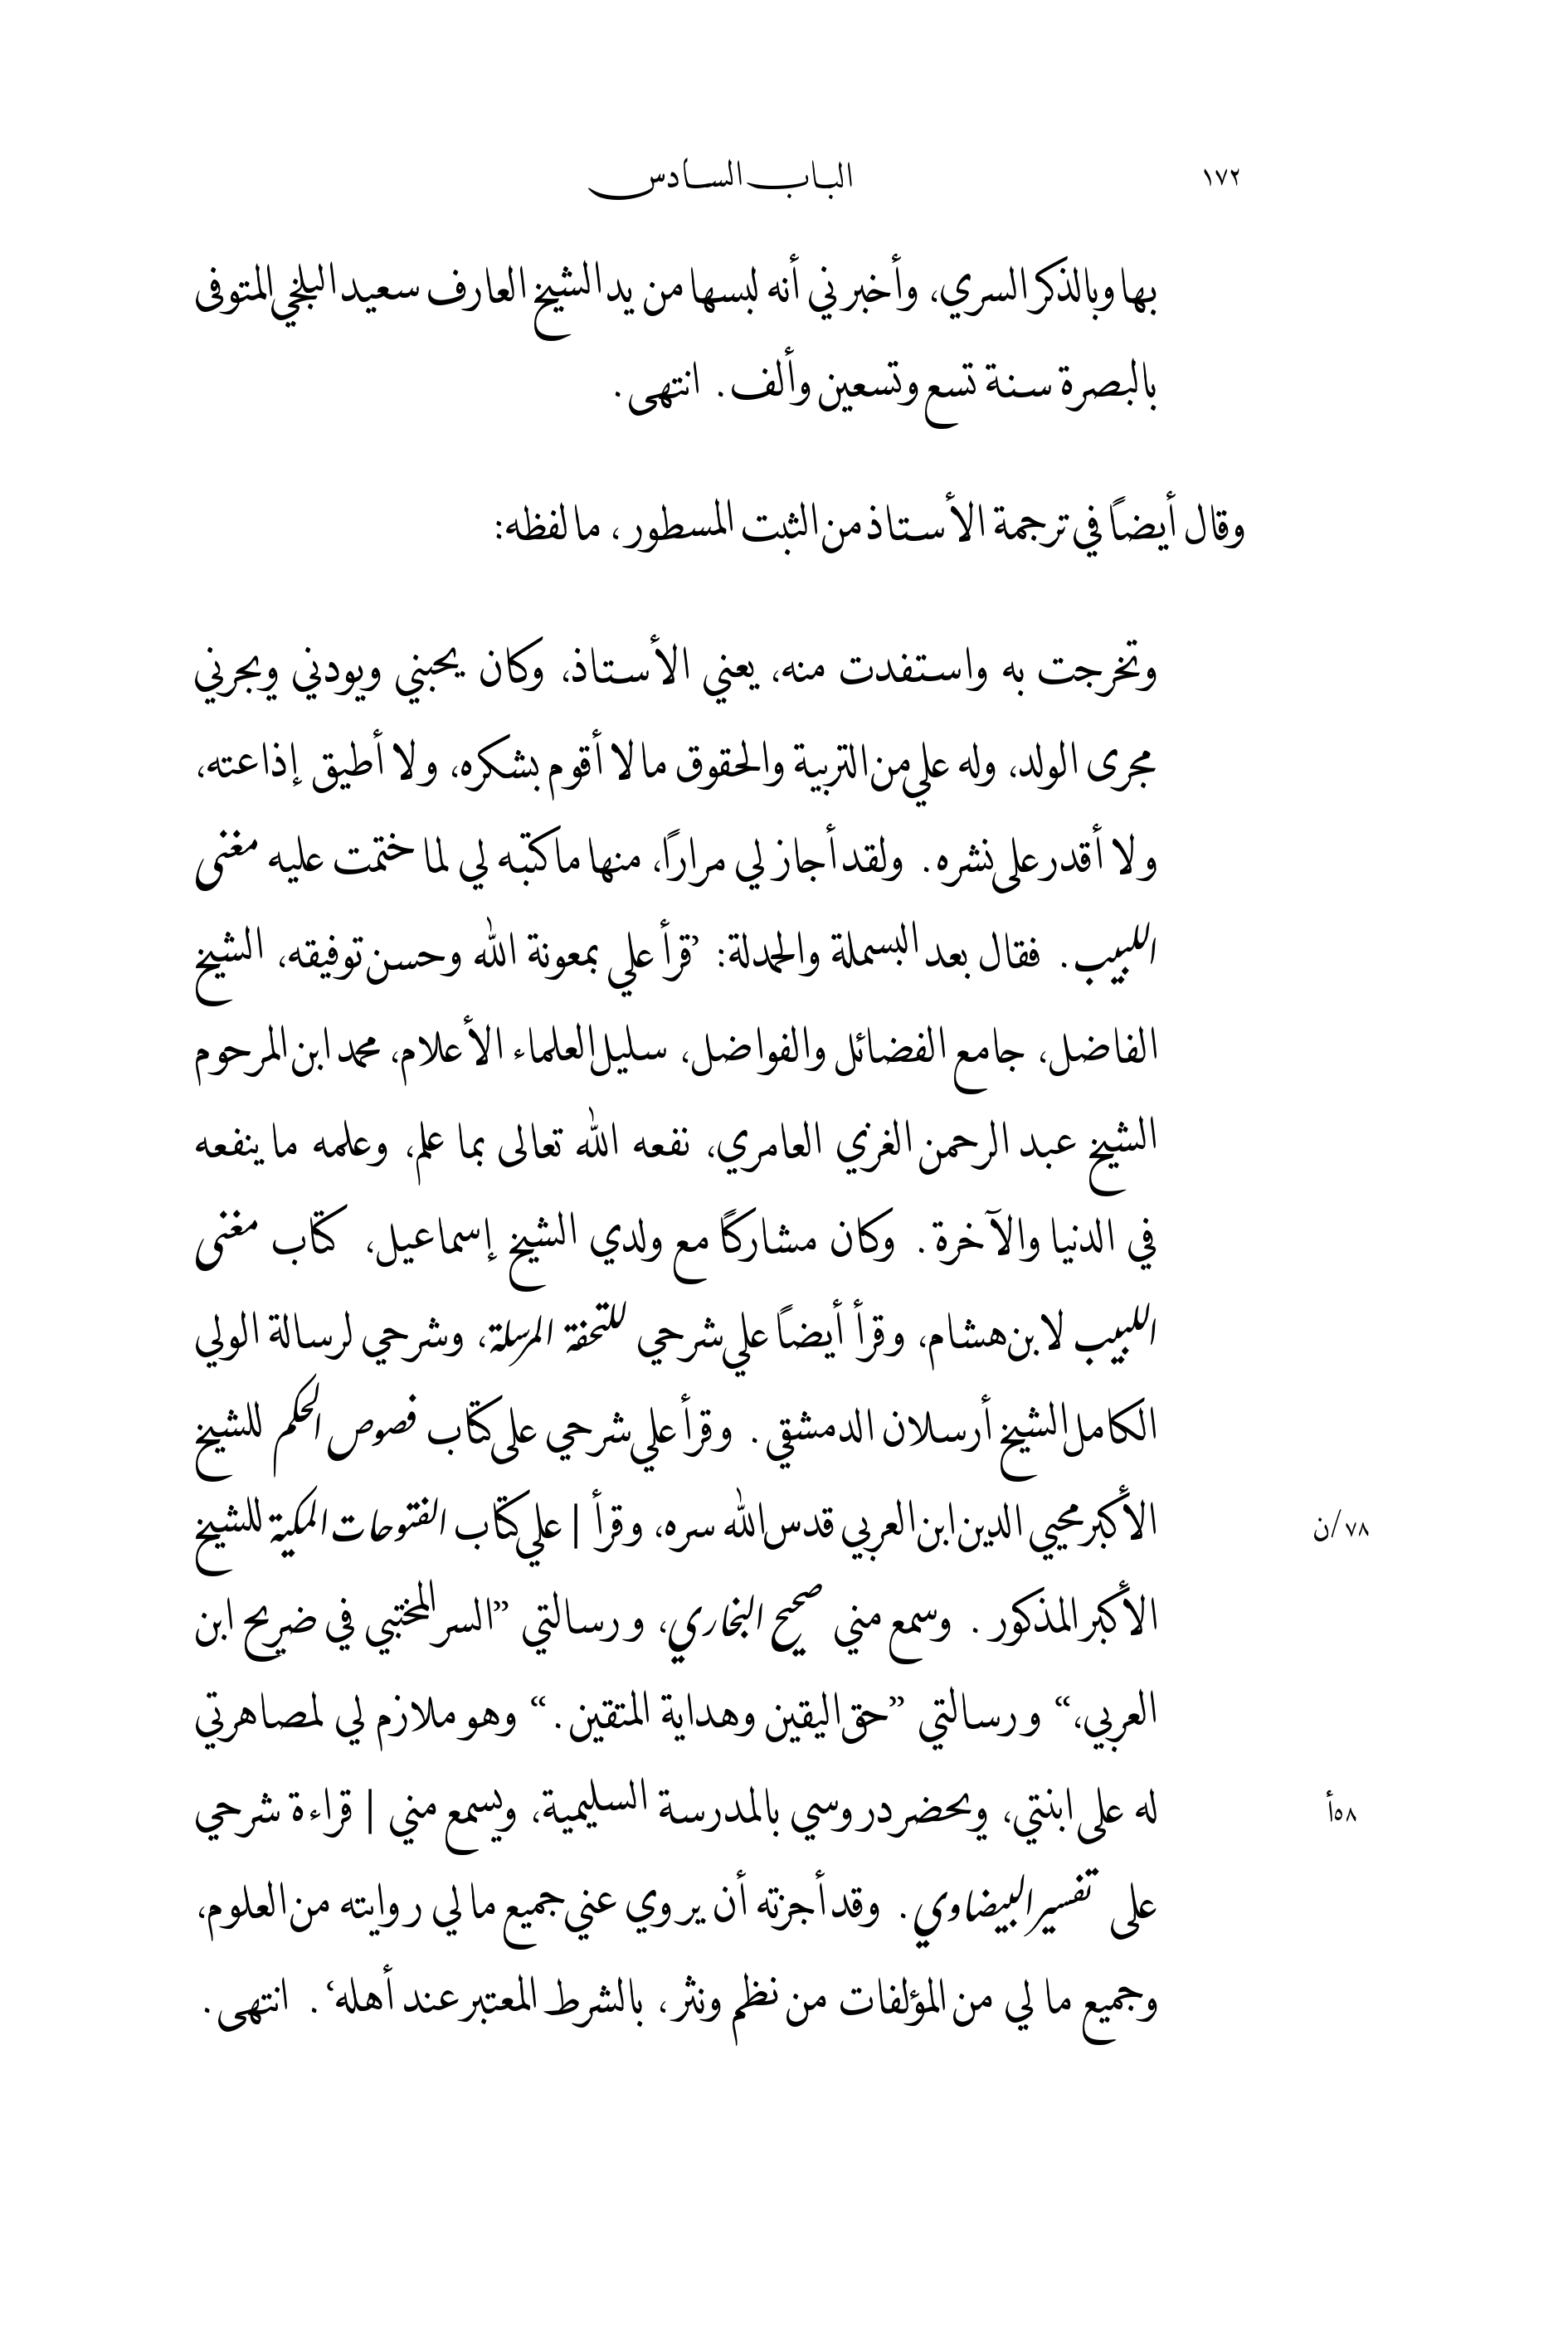 ١٧٢ الباب السادس
بها وبالذكر السري، وأخبرني أنه لبسها من يد الشيخ العارف سعيد البلخي المتوفى
بالبصرة سنة تسع وتسعين وألف. انتهى.
وقال أيضاً في ترجمة الأستاذ من الثبت المسطور، ما لفظه:
وتخرجت به واستفدت منه، يعني الأستاذ، وكان يحبني ويودني ويجرني
مجرى الولد، وله علي من التربية والحقوق ما لا أقوم بشكره، ولا أطيق إذاعته،
ولا أقدر على نشره. ولقد أجاز لي مراراً، منها ما كتبه لي لما ختمت عليه مغنى
اللبيب. فقال بعد البسملة والحمدلة: ’قرأ علي بمعونة الله وحسن توفيقه، الشيخ
الفاضل، جامع الفضائل والفواضل، سليل العلماء الأعلام، محمد ابن المرحوم
الشيخ عبد الرحمن الغزي العامري، نفعه الله تعالى بما علم، وعلمه ما ينفعه
في الدنيا والآخرة. وكان مشاركاً مع ولدي الشيخ إسماعيل، كتاب مغنى
اللبيب لابن هشام، وقرأ أيضاً علي شرحي للتحفة المرسلة، وشرحي لرسالة الولي
الكامل الشيخ أرسلان الدمشقي. وقرأ علي شرحي على كتاب فصوص الحكم للشيخ
الأكبر محيي الدين ابن العربي قدس الله سره، وقرأ | علي كتاب الفتوحات المكية للشيخ ٧٨/ن
الأكبر المذكور. وسمع مني صحيح البخاري، ورسالتي ”السر المختبي في ضريح ابن
العربي،“ ورسالتي ”حق اليقين وهداية المتقين.“ وهو ملازم لي لمصاهرتي
له على ابنتي، ويحضر دروسي بالمدرسة السليمية، ويسمع مني | قراءة شرحي ٥٨أ
على تفسير البيضاوي. وقد أجزته أن يروي عني جميع ما لي روايته من العلوم،
وجميع ما لي من المؤلفات من نظم ونثر، بالشرط المعتبر عند أهله‘. انتهى.